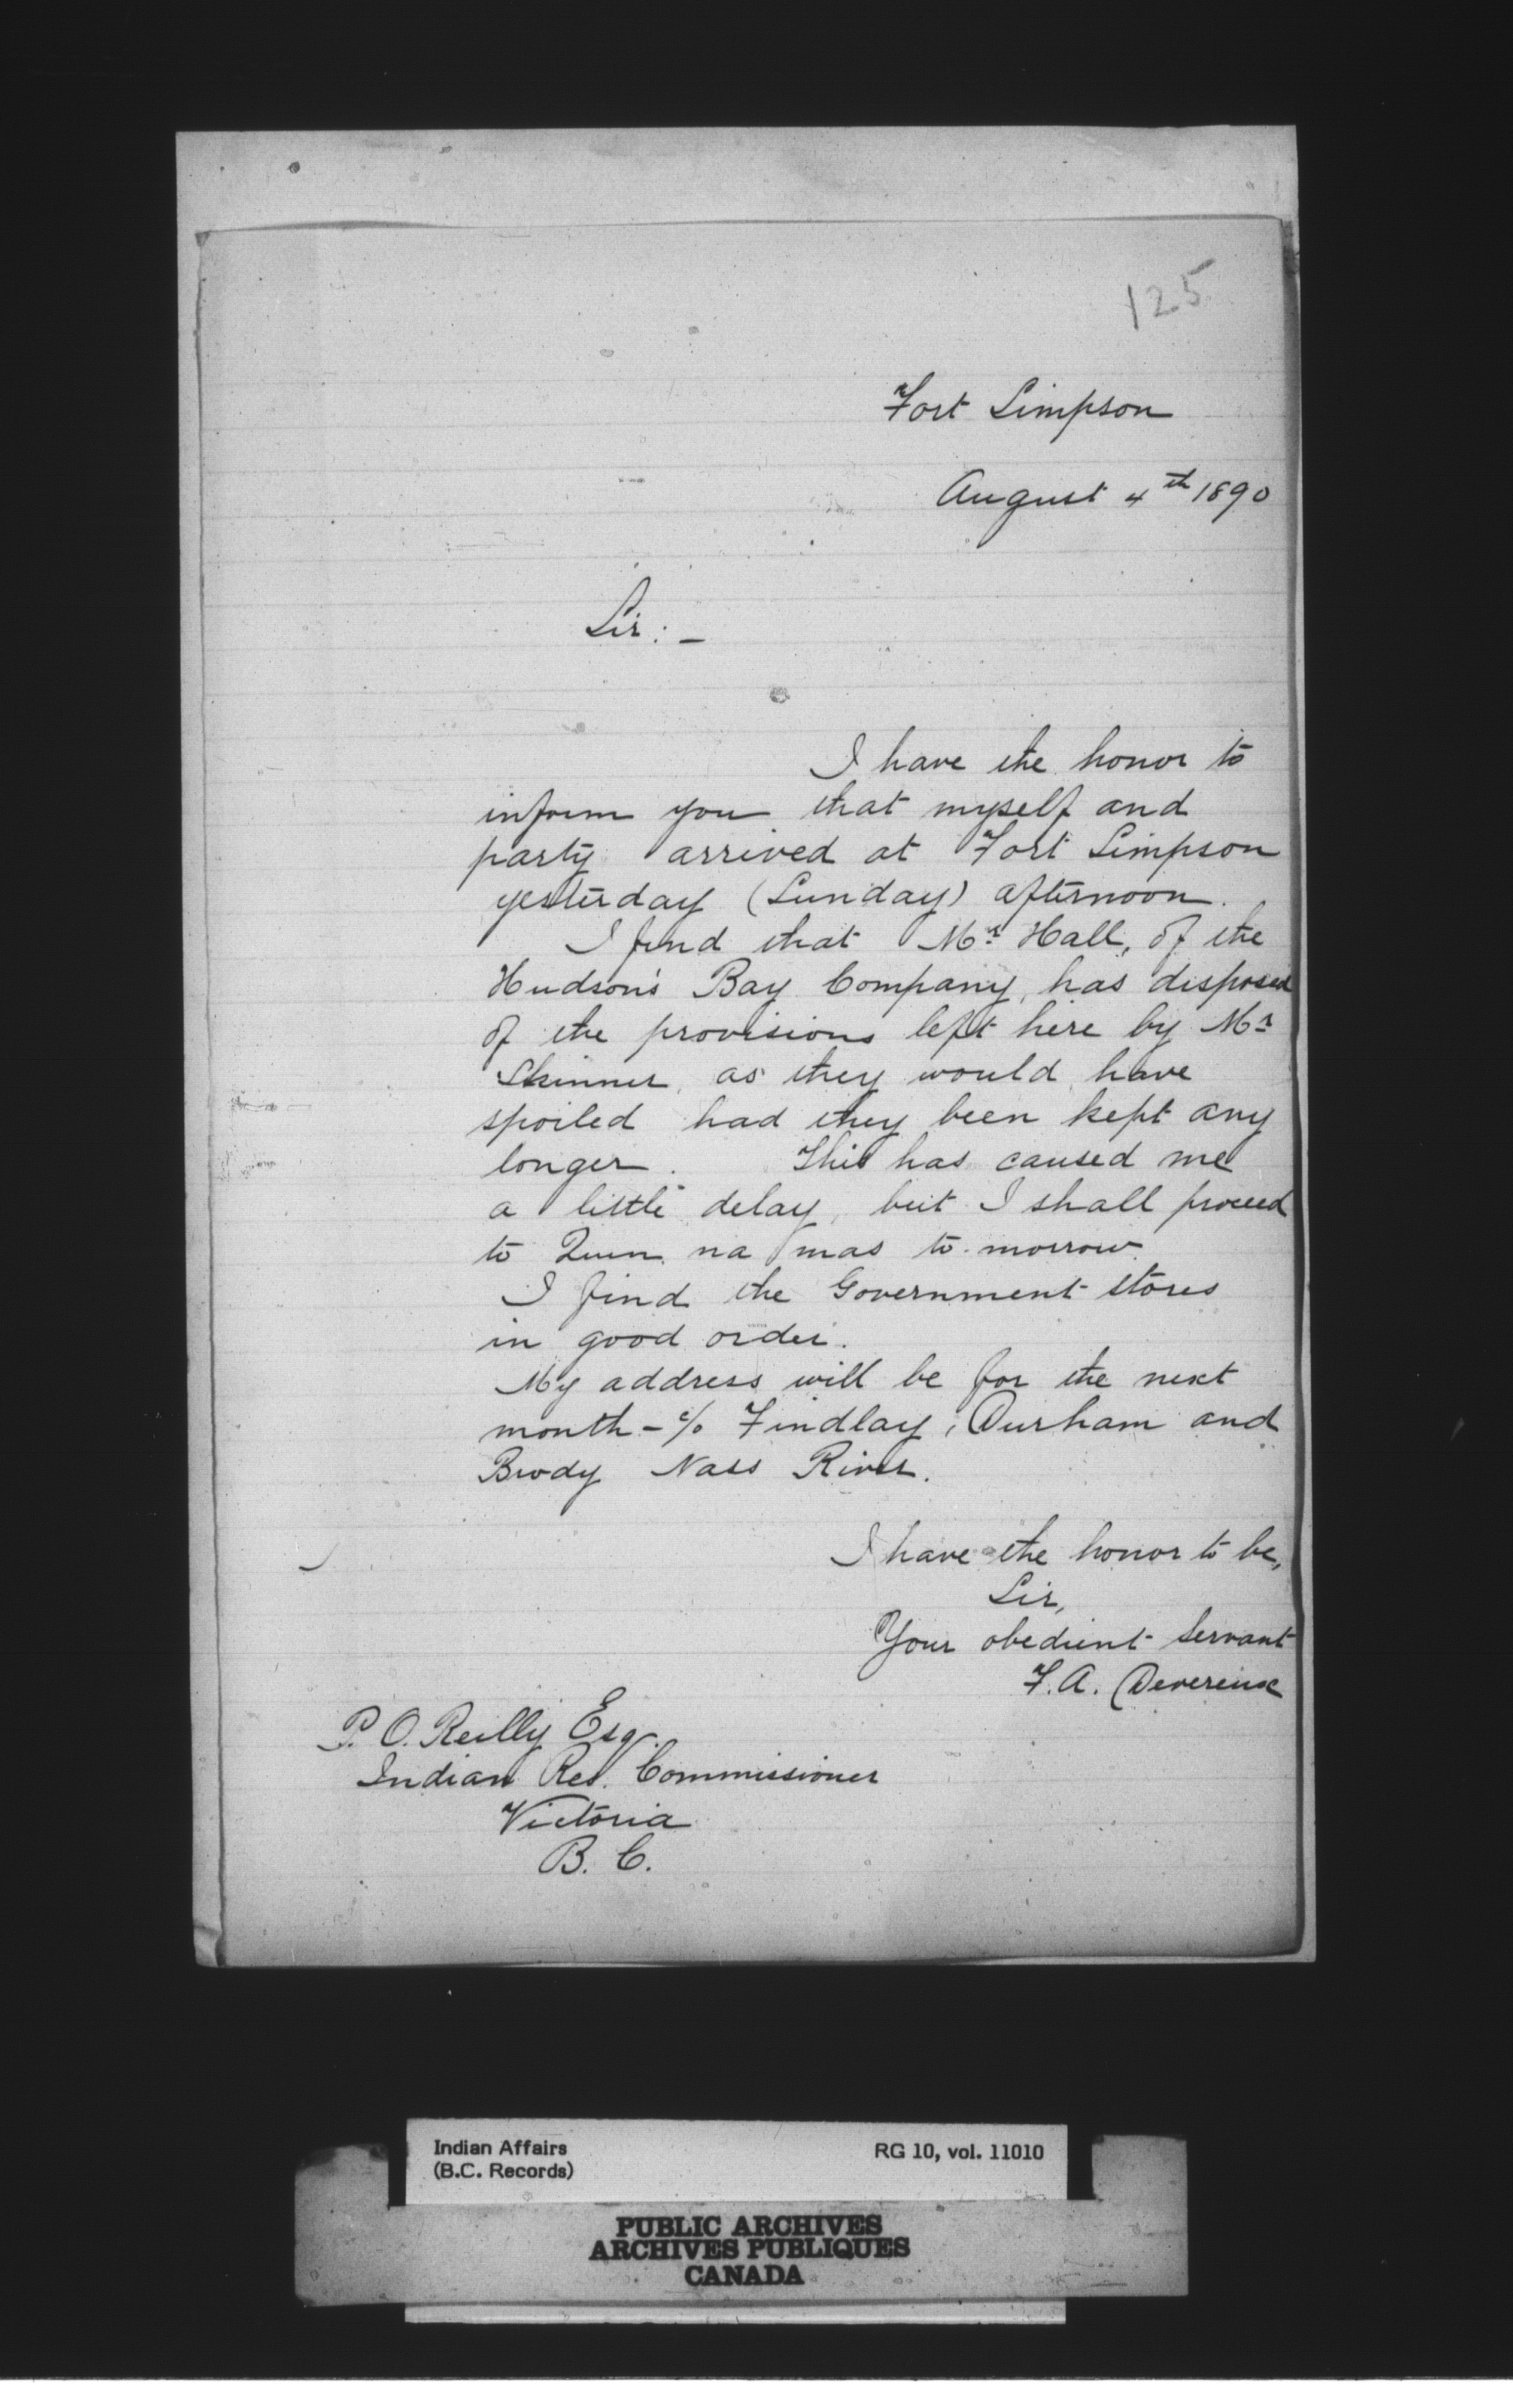 125
Fort Simpson
August 4th 1890
Sir:-
I have the honor to
inform you that myself and
party arrived at Fort Simpson
yesterday (Sunday) afternoon.
I find that Mr Hall, of the
Hudson's Bay Company, has disposed
of the provisions left here by Mr
Skinner, as they would have
spoiled had they been kept any
longer. This has caused me
a little delay, but I shall proceed
to Quin na mas to-morrow.
I find the Government stores
in good order.
My address will be for the next
month - c/o Findlay, Durham and
Brody Nass River.
I have the honor to be,
Sir,
Your obedient Servant
F.A. Devereux
P. O. Reilly Esq.
Indian Res. Commissioner
Victoria
B. C.
Indian Affairs RG 10, vol. 11010
(B.C. Records)
PUBLIC ARCHIVES
ARCHIVES PUBLIQUES
CANADA